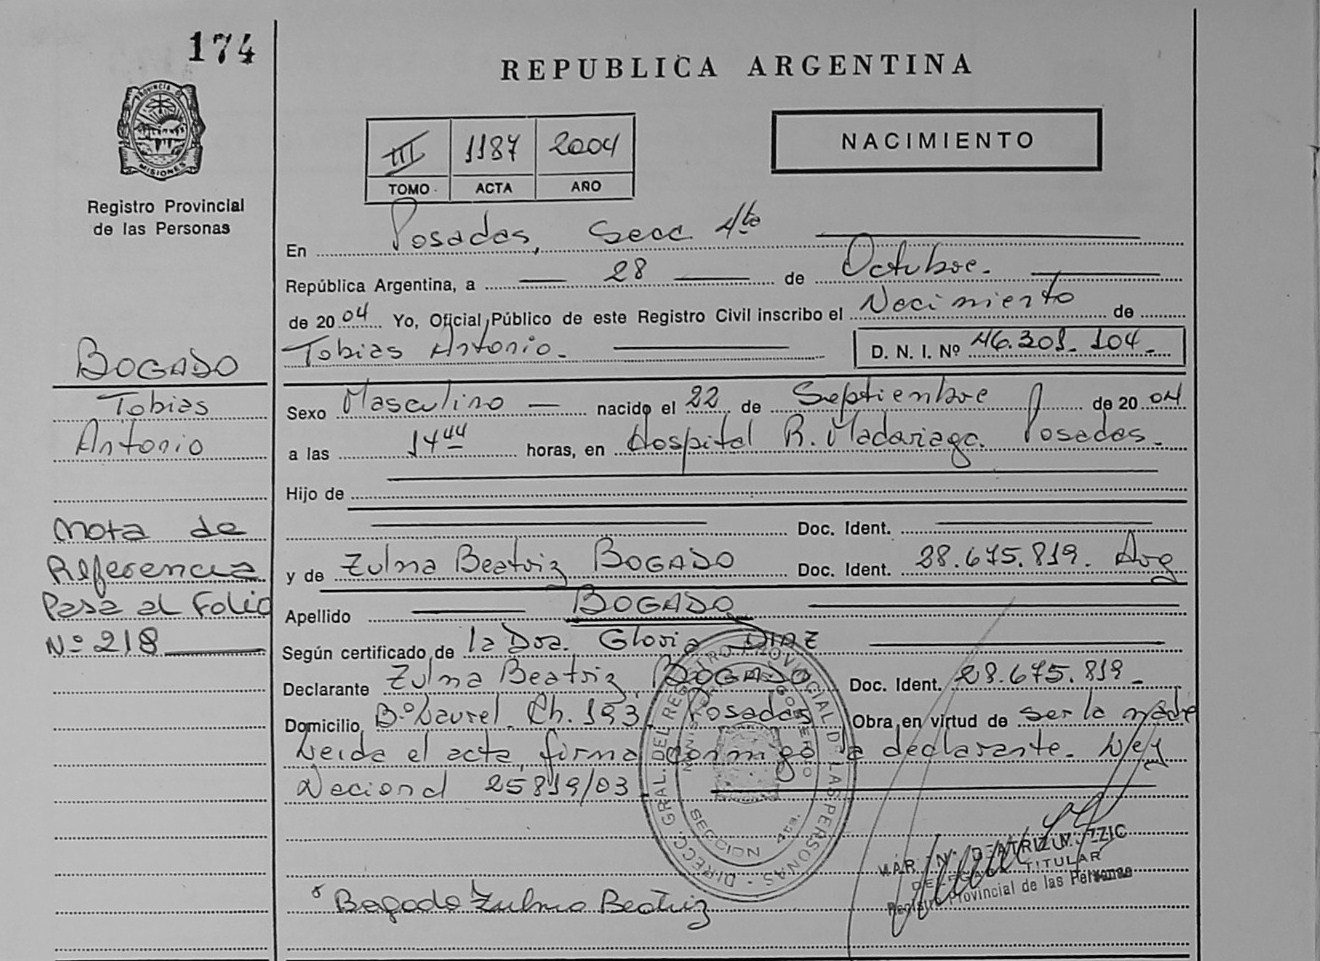 174
REPUBLICA ARGENTINA
PROVINCIA DE
MISIONES
Registro Provincial
de las Personas
III 1187 2004
TOMO ACTA AÑO
NACIMIENTO
En Posadas, Secc 4ta
República Argentina, a 28 de Octubre.
de 2004 Yo, Oficial Público de este Registro Civil inscribo el Nacimiento de
Tobias Antonio.
D. N. I. Nº 46.301.104
BOGADO
Tobias
Antonio
Sexo Masculino nacido el 22 de Septiembre de 2004
a las 14 44 horas, en Hospital R. Madariaga. Posadas.
Hijo de
Doc. Ident.
y de Zulma Beatriz BOGADO Doc. Ident. 28.675.819. Arg
Apellido BOGADO
Nota de
Referencia
Pasa al Folio
Nº 218
Según certificado de la Dra. Gloria DIAZ
Declarante Zulma Beatriz BOGADO Doc. Ident. 28.675.819
Domicilio Bº Laurel. Ch. 193 Posadas Obra en virtud de ser la madre
Leida el acta, firma conmigo la declarante. Ley
Nacional 25819/03
DIRECC. GRAL. DEL REGISTRO PROVINCIAL D LAS PERSONAS
SECCION 4ta.
TITULAR
Registro Provincial de las Personas
Bogado Zulma Beatriz